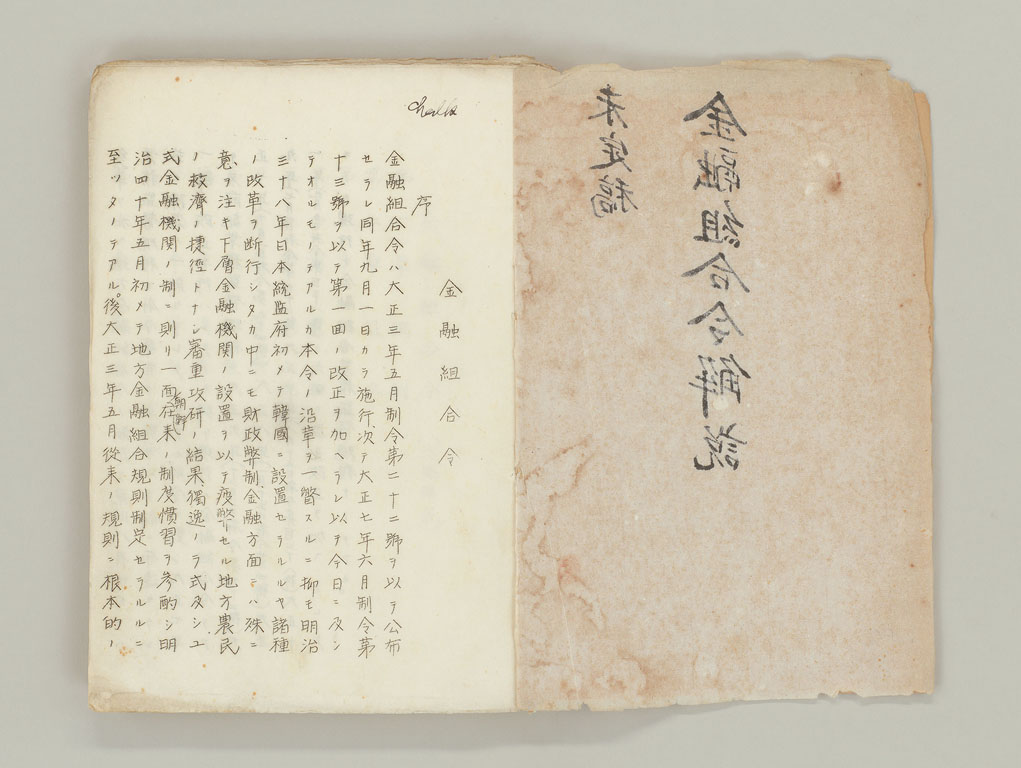 金融組合令解説
未定稿
金融組合令
序
金融組合令ハ大正三年五月制令第二十二號ヲ以テ公布
セラレ同年九月一日カラ施行、次テ大正七年六月制令第
十三號ヲ以テ第一回ノ改正ヲ加ヘラレ以テ今日ニ及ン
テオルモノテアルカ本令ノ沿革ヲ一瞥スルニ抑モ明治
三十八年日本統監府初メテ韓國ニ設置セラルルヤ諸種
ノ改革ヲ断行シタカ中ニモ財政幣制金融方面ニハ殊ニ
意ヲ注キ下層金融機関ノ設置ヲ以テ疲弊セル地方農民
ノ救濟ノ捷徑トナシ審重攻研ノ結果獨逸ノラ式及シユ
式金融機関ノ制ニ則リ一面朝鮮在来ノ制度慣習ヲ参酌シ明
治四十年五月初メテ地方金融組合規則制定セラルルニ
至ツタノテアル。後大正三年五月従来ノ規則ニ根本的ノ